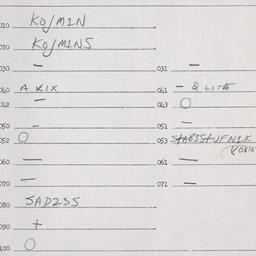 010 KO/MIN
020 KO/MINS
030 — 031 —
040 A KIX 041 — Q LITE
042 — 043 O
050 — 051 —
052 O 053
060 — 061 —
070 — 071 —
080 SADZSS
090 +
100 O